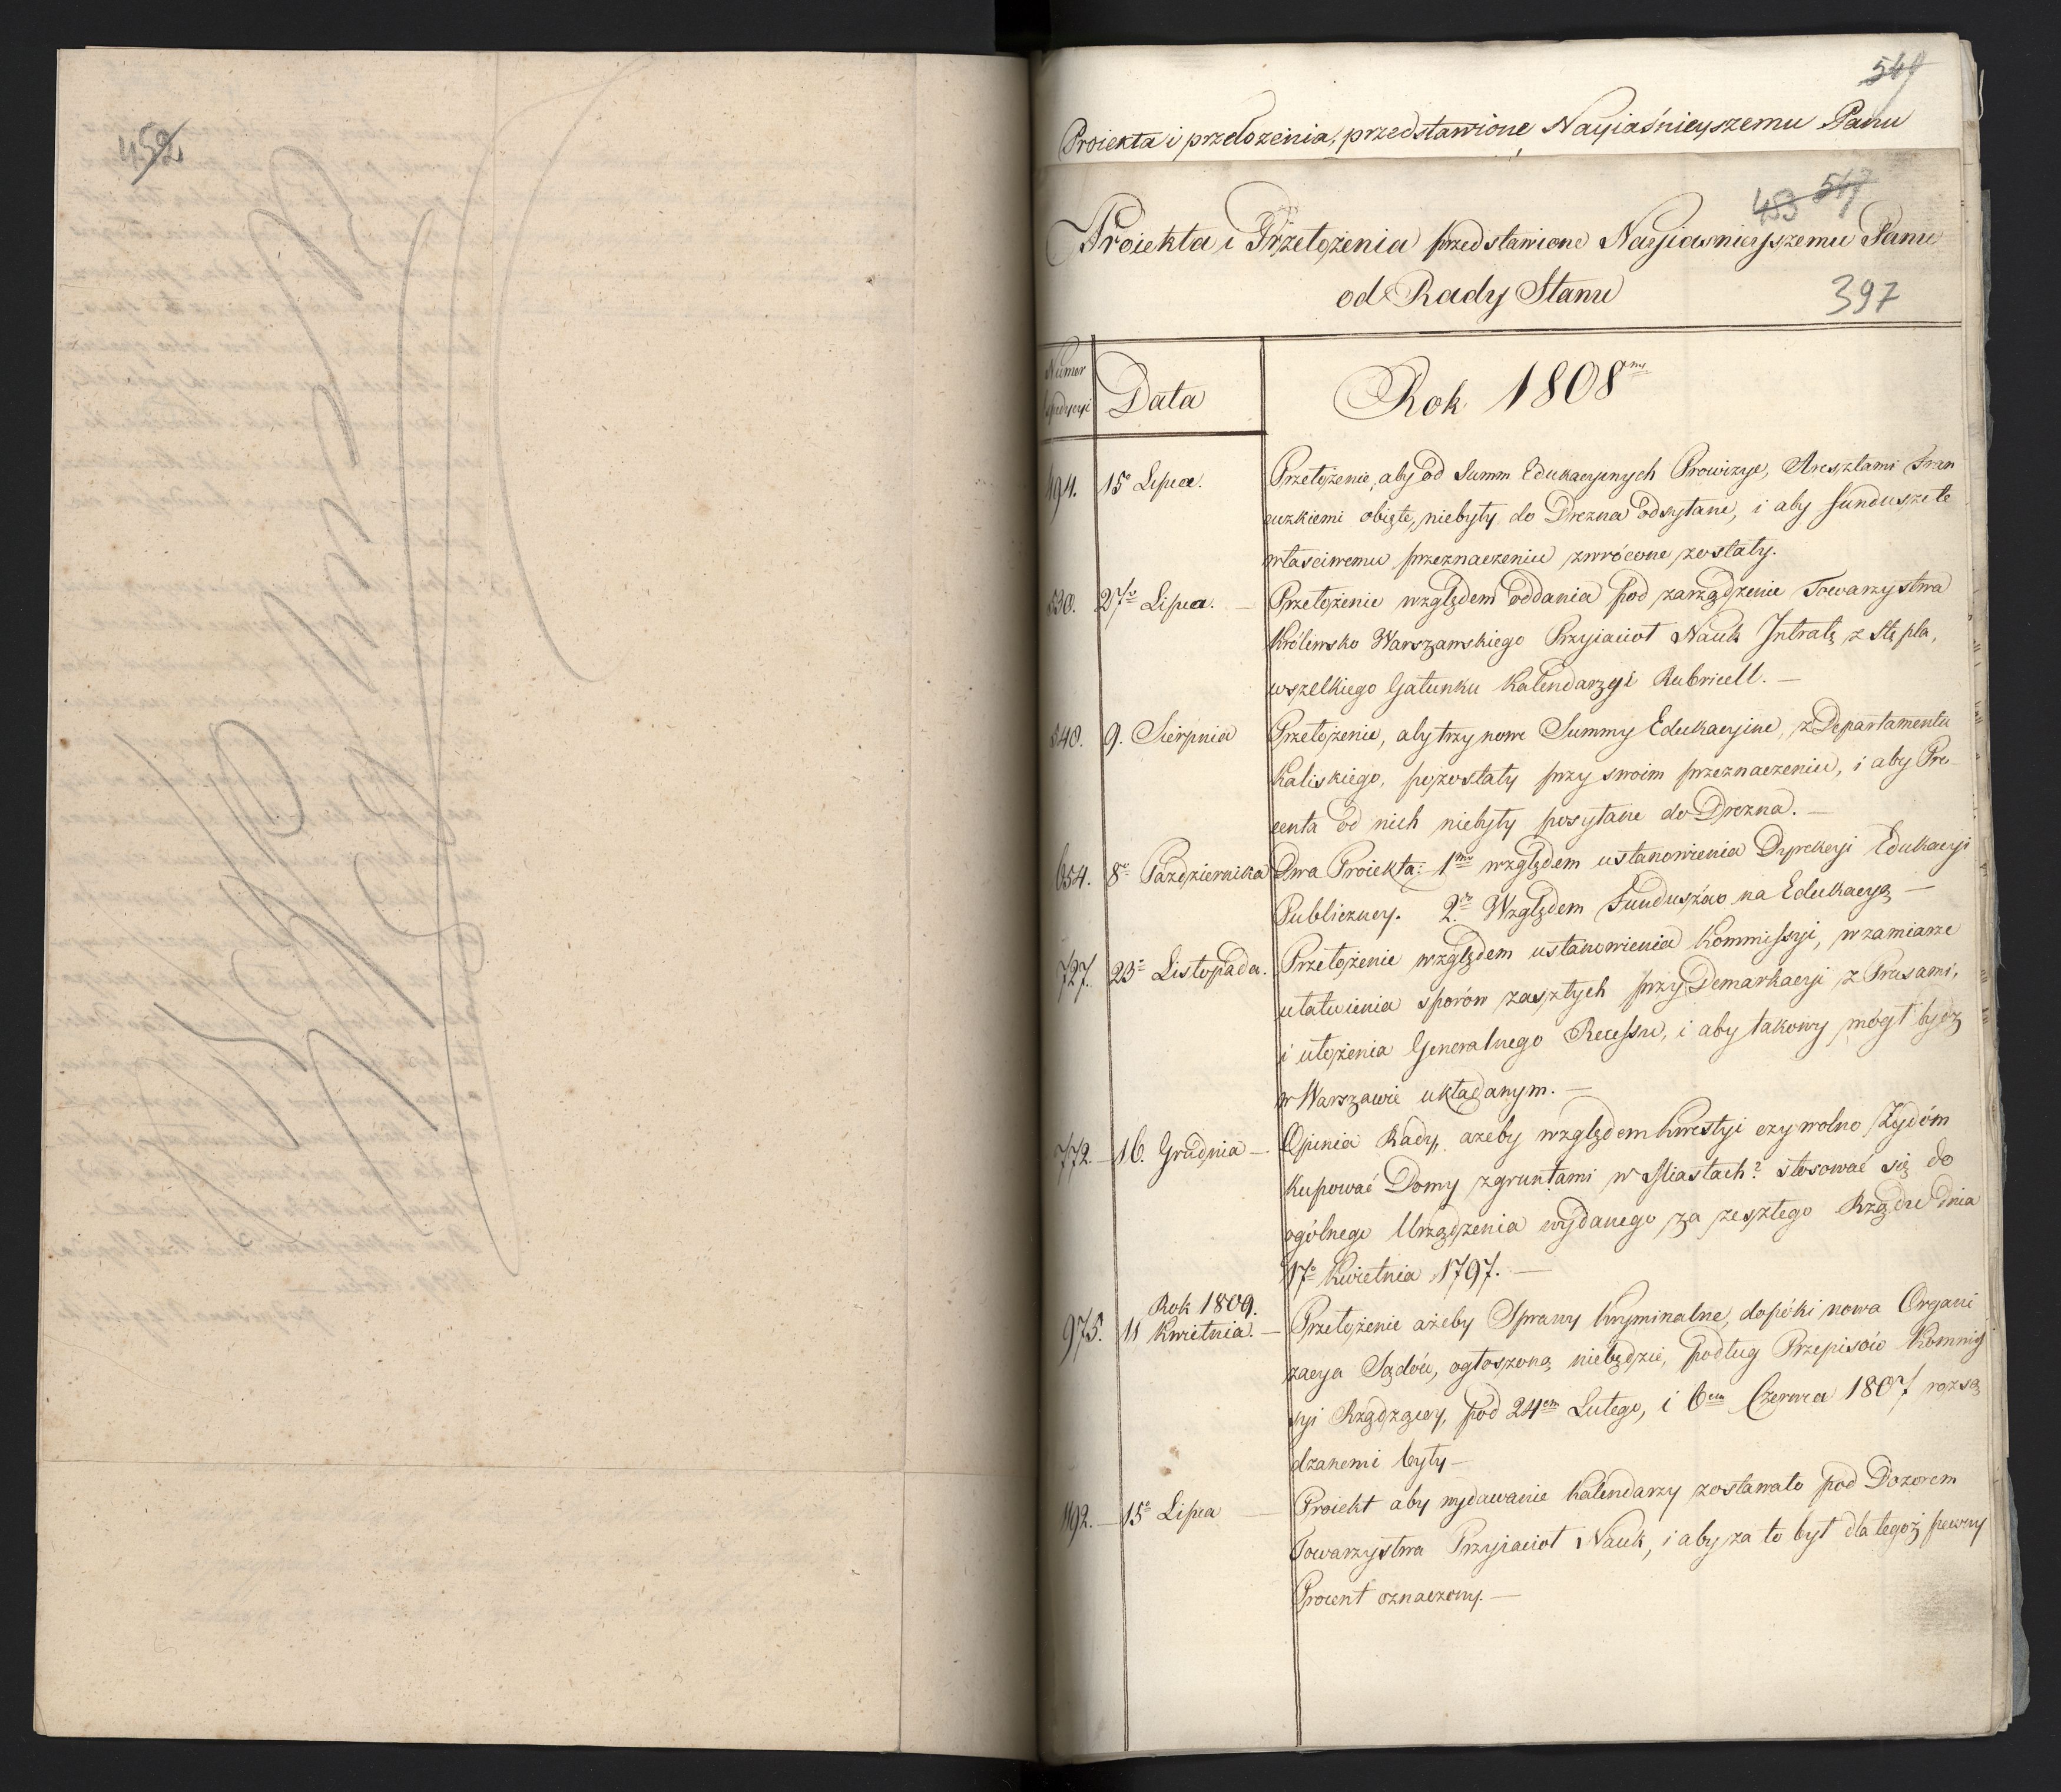 452
549
Proiekta i przełożenia, przedstawione Nayiaśnieyszemu Panu
453 547
Proiekta i Przełożenia przedstawione Nayiasnieyszemu Panu
od Rady Stanu
397
Numer
Data
Rok 1808ny
494. 15o Lipca. Przełożenie, aby od Summ Edukacyinych Prowizye, Aresztami Fran
cuzkiemi obięte, niebyły do Drezna odsyłane, i aby fundusze te
własciwemu przeznaczeniu zwrócone zostały.
530. 27o Lipca. — Przełożenie względem oddania pod zarządzenie Towarzystwa
Królewsko Warszawskiego Przyiaciół Nauk Intratę z Stępla,
wszelkiego Gatunku Kalendarzy i Rubricell. —
540. 9. Sierpnia Przełożenie, aby trzy nowe Summy Edukacyine, z Departamentu
Kaliskiego, pozostały przy swoim przeznaczeniu, i aby Pro
centa od nich niebyły posyłane do Drezna. —
654. 8o Października Dwa Proiekta: 1mo względem ustanowienia Dyrekcyi Edukacyi
Publiczney. 2o Względem Funduszów na Edukacyą —
727. 23o Listopada. Przełożenie względem ustanowienia Kommissyi, w zamiarze
ułatwienia sporów zaszłych przy Demarkacyi z Prusami,
i ułożenia Generalnego Recessu, i aby takowy mógł bydź
w Warszawie układanym. —
772. — 16. Grudnia — Opinia Rady, ażeby względem kwestyi czy wolno Żydóm
kupować Domy z gruntami w Miastach? stosować się do
ogólnego Urządzenia wydanego za zeszłego Rządu dnia
17o Kwietnia 1797. —
Rok 1809.
975. 11 Kwietnia. — Przełożenie ażeby Sprawy kryminalne, dopóki nowa Organi
zacya Sądów, ogłoszoną niebędzie, podług Przepisów Kommis
syi Rządzącey, pod 24em Lutego, i 6em Czerwca 1807 rozsą
dzanemi były —
1192. — 15o Lipca — Proiekt aby wydawanie Kalendarzy zostawało pod Dozorem
Towarzystwa Przyiaciół Nauk, i aby za to był dla tegoż pewny
Procent oznaczony. —